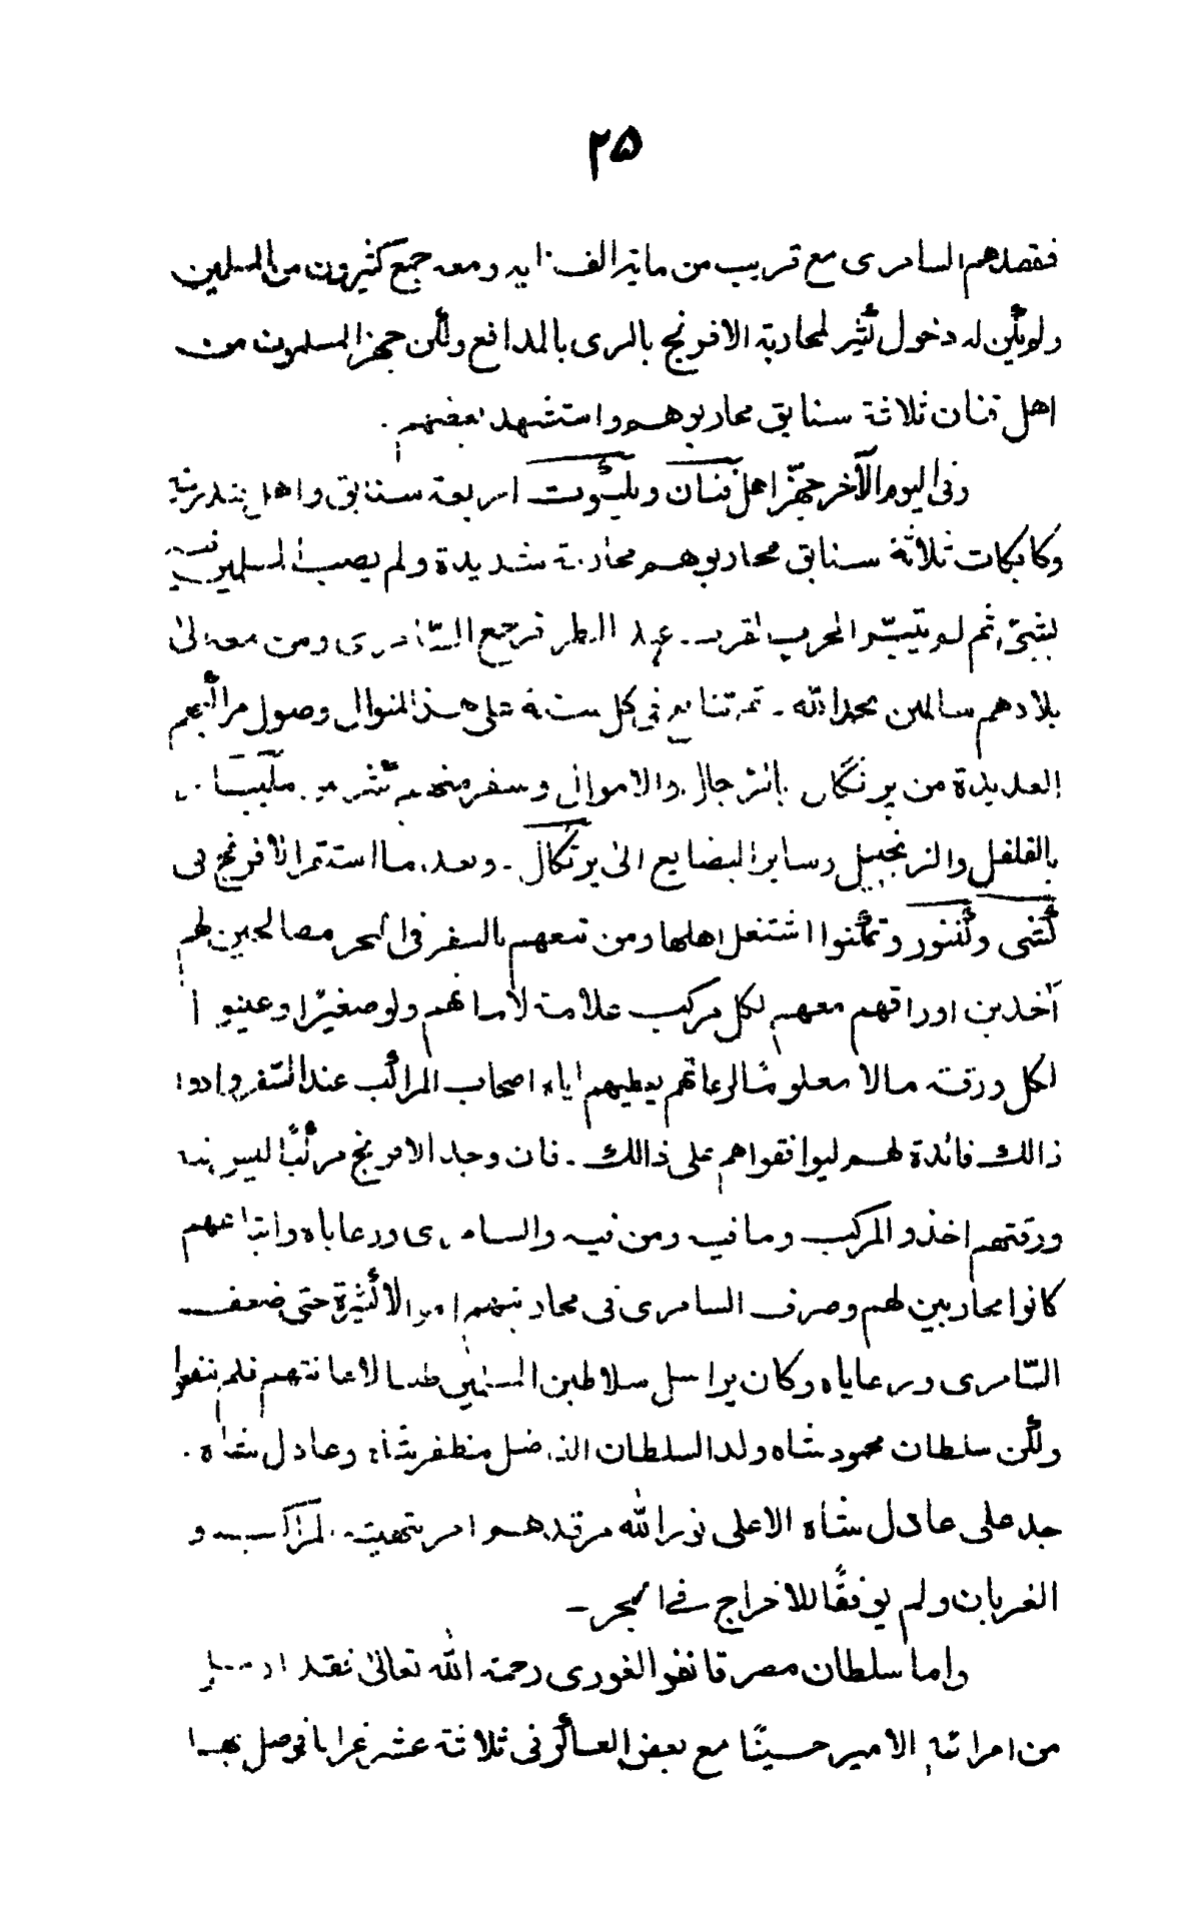 ٢٥
فقصدهم السامرى مع قريب من ماية الف نايد ومعه جمع كثيرون من المسلمين
ولم يكن له دخول كثير لمحاربة الافرنج بالرمى بالمدافع ولكن جهز المسلمون من
اهل فنان ثلاثة سنابق محاربوهم واستشهد بعضهم .
وفى اليوم الآخر جهّز اهل فنان وبليبوت اربعة سنابق واهل بندرنية
وكابكات ثلاثة سنابق محاربوهم محاربة شديدة ولم يصب المسلمين
بشئ، ثم لم يتيسّر الحرب لقرب عهد المطر فرجع السّامرى ومن معه الى
بلادهم سالمين بحمد الله - ثم تتابع فى كل سنة على هذا المنوال وصول مراكبهم
العديدة من پرتكال بالرجال والاموال وسفر من مليبار
بالفلفل والزنجبيل وساير البضايع الى پرتكال - وبعد ما استتم الافرنج فى
كشى وكننور وتمكنوا اشتغل اهلها ومن تبعهم بالسفر فى البحر مصالحين لهم
آخذين اوراقهم معهم لكل مركب علامة لامانهم ولو صغيرًا وعينوا
لكل ورقة مالا معلومًا لرعاتهم يعطيهم اياه اصحاب المراكب عند السّفر وارادوا
ذالك فائدة لهم ليوافقواهم على ذالك - فان وجد الافرنج مركبًا ليس فيه
ورقتهم اخذوا المركب وما فيه ومن فيه والسامرى ورعاياه واتباعهم
كانوا محاربين لهم وصرف السامرى فى محاربتهم اموالا كثيرة حتى ضعف
السّامرى ورعاياه وكان يراسل سلاطين المسلمين طلبا لاعانتهم فلم ينفعوا
ولكن سلطان محمود شاه ولد السلطان الفاضل مظفر شاه وعادل شاه .
جد على عادل شاه الاعلى نور الله مرقدهم امر بتهيئة المراكب و
الغربان ولم يوفقًا للاخراج فى البحر -
واما سلطان مصر قانغو الغورى رحمة الله تعالىٰ فقد ارسل
من امرائه الامير حسينًا مع بعض العساكر فى ثلاثة عشر غرابا فوصل بهما